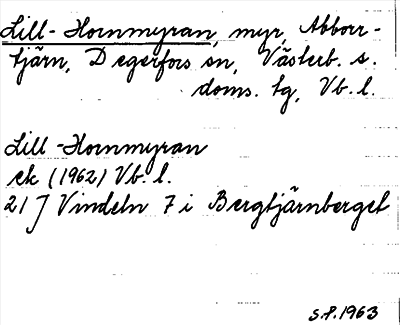 Lill-Hornmyran, myr, Abborr-
tjärn, Degerfors sn, Västerb. s.
doms. tg, Vb. l.
Lill-Hornmyran
ek (1962) Vb. l.
21 J Vindeln 7 i Bergtjärnberget
S.P. 1963